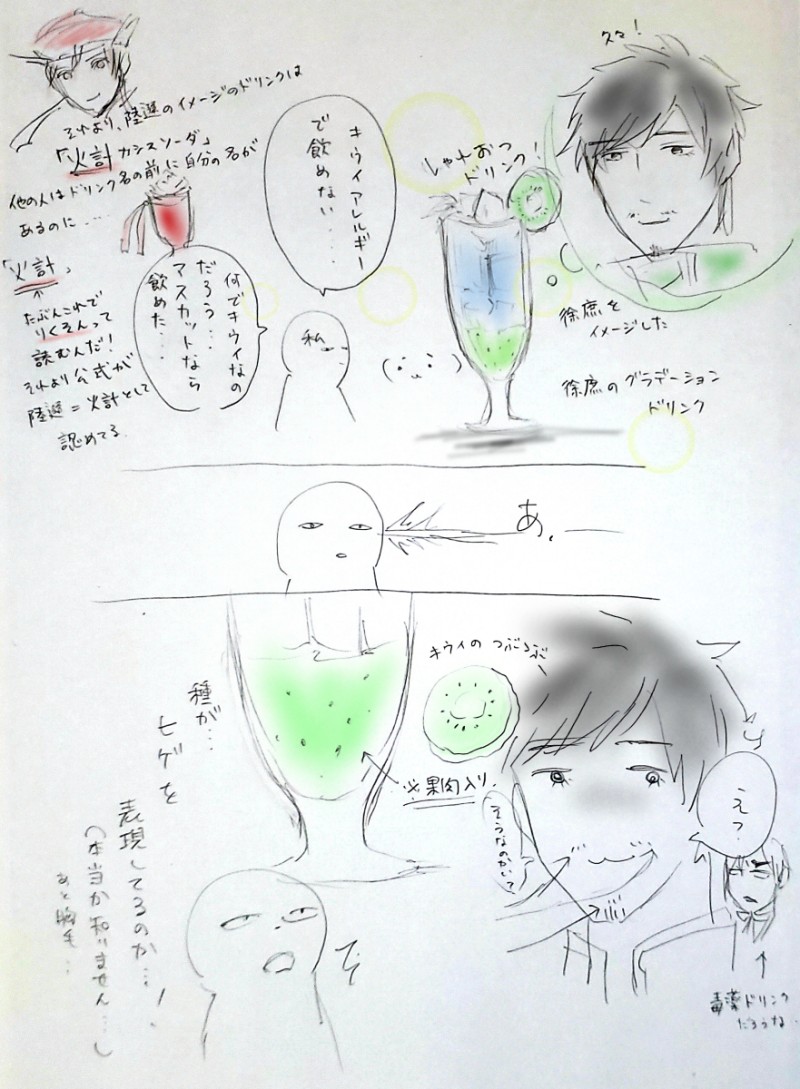 久々！
それより、陸遜のイメージのドリンクは
「火計カシスソーダ」
他の人はドリンク名の前に自分の名が
あるのに....
「火計」
↑
たぶんこれで
りくそんって
読むんだ！
それより公式が
陸遜=火計として
認めてる
キウイアレルギー
で飲めない....
何でキウイなの
だろう...
マスカットなら
飲めた...
私
しゃれおつ
ドリンク！
徐庶を
イメージした
徐庶のグラデーション
ドリンク
あ、
キウイの つぶつぶ
種が...
ヒゲを
表現してるのか...！
(本当か知りません...)
あと胸毛...
※果肉入り
そうなのかい？
えっ
毒薬ドリンク
だろうな..